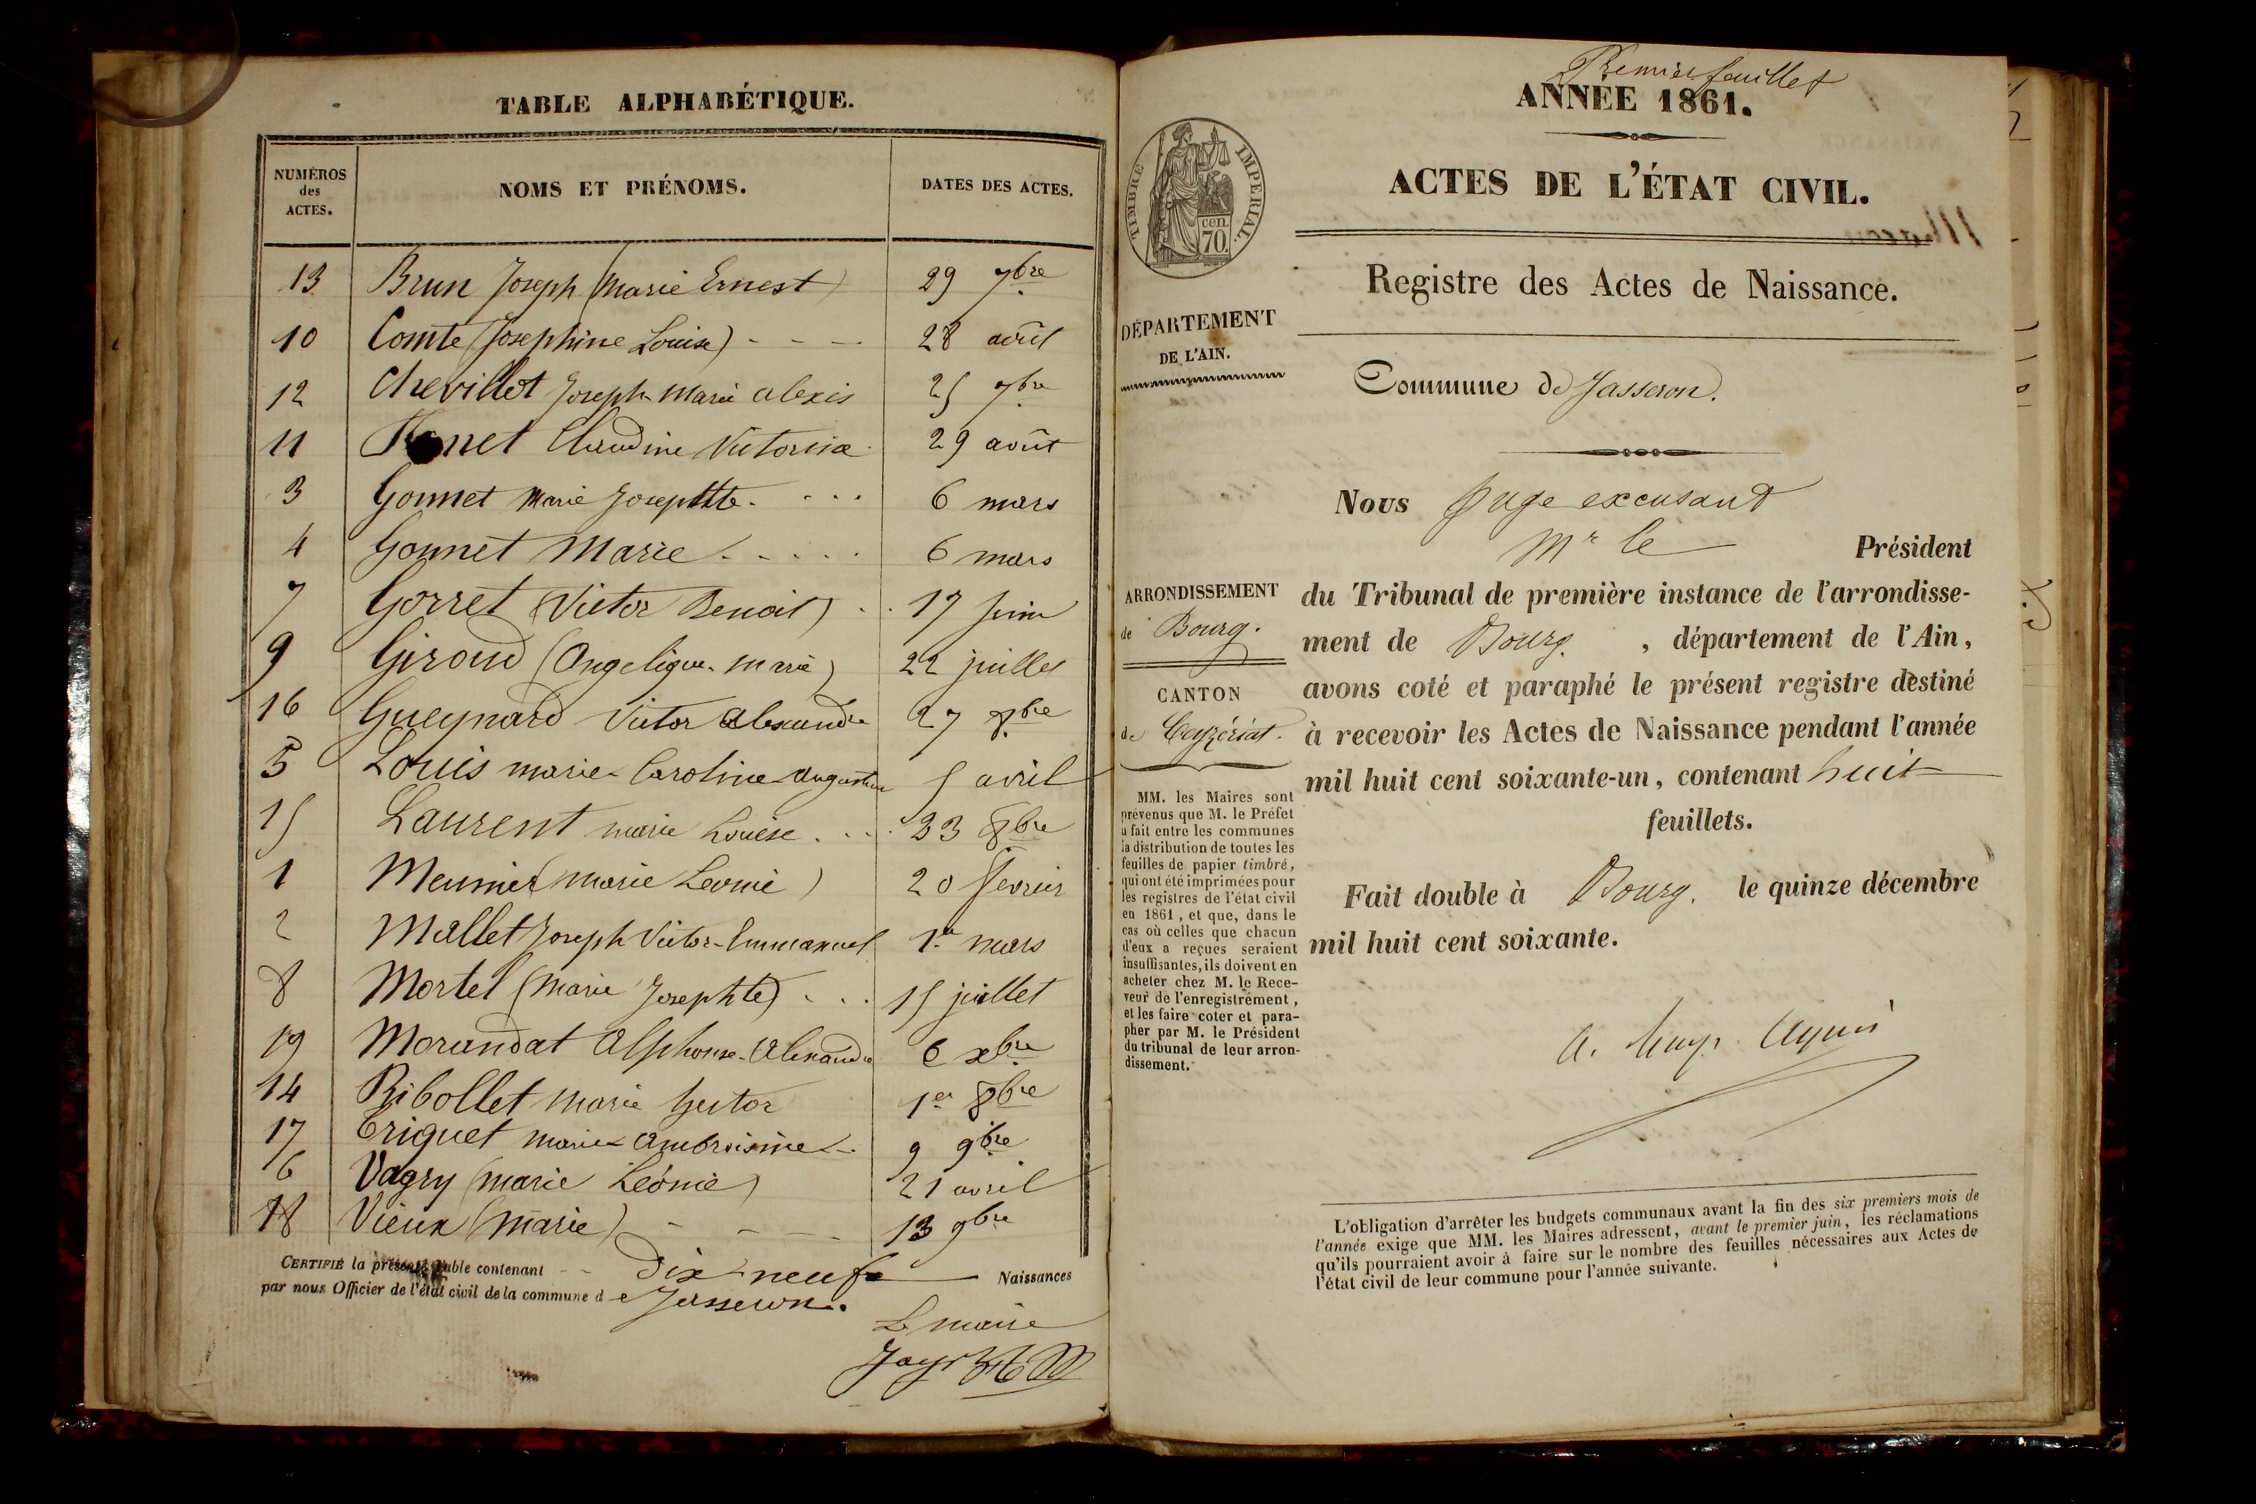 TABLE ALPHABÉTIQUE.
NUMÉROS des ACTES.
NOMS ET PRÉNOMS.
DATES DES ACTES.
13 Brun Joseph (Marie Ernest) 29 7bre
10 Comte (Josephine Louise) - - - - 28 août
12 Chevillot Joseph Marie Alexis 25 7bre
11 Claudine Victorine 29 août
3 Gonnet Marie Josephte. - - - 6 mars
4 Gonnet Marie - - - - - 6 mars
7 Gorret (Victor Benoit) - - 17 juin
9 Giroud (Angelique Marie) 22 juillet
16 Gueynard Victor Alexandre 27 8bre
5 Louis marie Caroline Augustine 5 avril
15 Laurent marie Louise . . . 23 8bre
1 Meunier (marie Leonie) 20 fevrier
2 Mallet Joseph Victor-Emmanuel 1er mars
8 Mortel (Marie Josephte) . . . 15 juillet
19 Morandat Alphonse-Alexandre 6 xbre
14 Ribollet Marie Hector 1er 8bre
17 Triquet marie Ambroisine - . 9 9bre
6 Vagry (marie Léonie) 21 avril
18 Vieux (Marie) - - - - 13 9bre
CERTIFIÉ la présente table contenant - - Dix-neuf Naissances
par nous Officier de l'état civil de la commune d e Jasseron.
Le maire
Premier feuillet
ANNÉE 1861.
ACTES DE L'ÉTAT CIVIL.
TIMBRE IMPERIAL.
cen. 70.
Registre des Actes de Naissance.
DÉPARTEMENT
DE L'AIN.
Commune de Jasseron.
Nous Juge excusant
Mr le Président
du Tribunal de première instance de l'arrondisse-
ment de Bourg. , département de l'Ain,
avons coté et paraphé le présent registre destiné
à recevoir les Actes de Naissance pendant l'année
mil huit cent soixante-un, contenant huit
feuillets.
Fait double à Bourg. le quinze décembre
mil huit cent soixante.
ARRONDISSEMENT
de Bourg.
CANTON
de Ceyzériat.
MM. les Maires sont
prévenus que M. le Préfet
a fait entre les communes
la distribution de toutes les
feuilles de papier timbré,
qui ont été imprimées pour
les registres de l'état civil
en 1861, et que, dans le
cas où celles que chacun
d'eux a reçues seraient
insuffisantes, ils doivent en
acheter chez M. le Rece-
veur de l'enregistrement,
et les faire coter et para-
pher par M. le Président
du tribunal de leur arron-
dissement.
L'obligation d'arrêter les budgets communaux avant la fin des six premiers mois de
l'année exige que MM. les Maires adressent, avant le premier juin, les réclamations
qu'ils pourraient avoir à faire sur le nombre des feuilles nécessaires aux Actes de
l'état civil de leur commune pour l'année suivante.